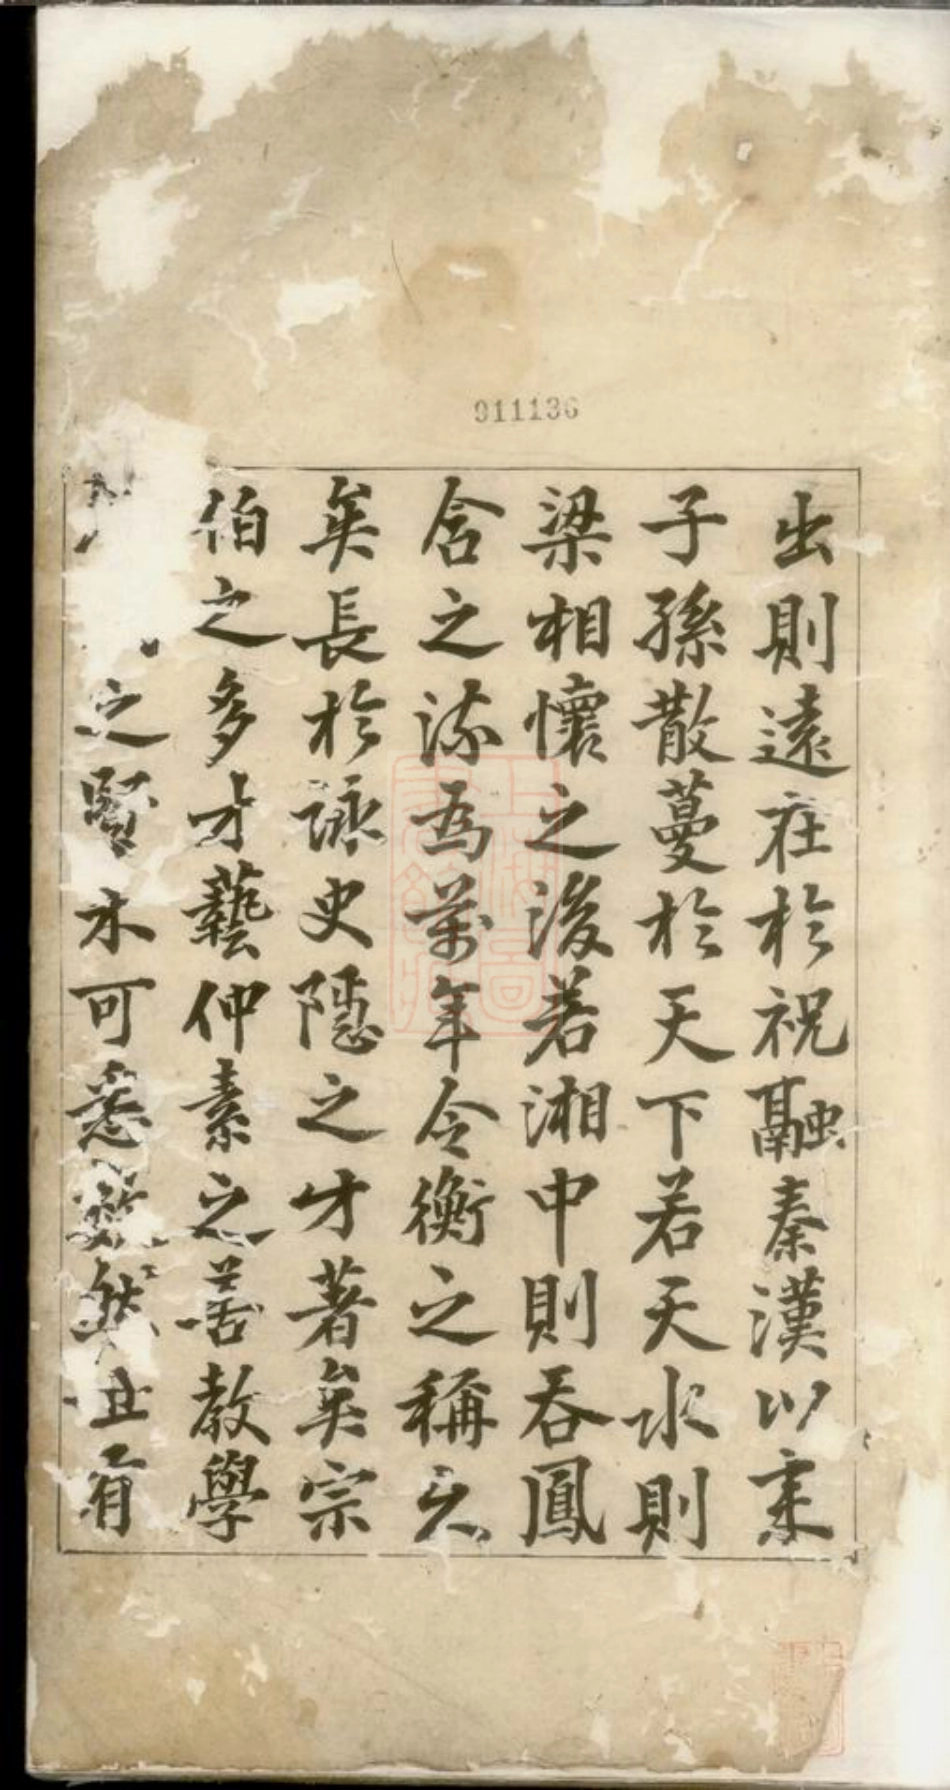 911136
出則遠在於祝融秦漢以来
子孫散蔓於天下若天水則
梁相懷之後若湘中則吞鳳
含之流為萬年令衡之稱久
矣長於詠史隱之才著矣宗
伯之多才藝仲素之善教學
之賢不可悉數然且有